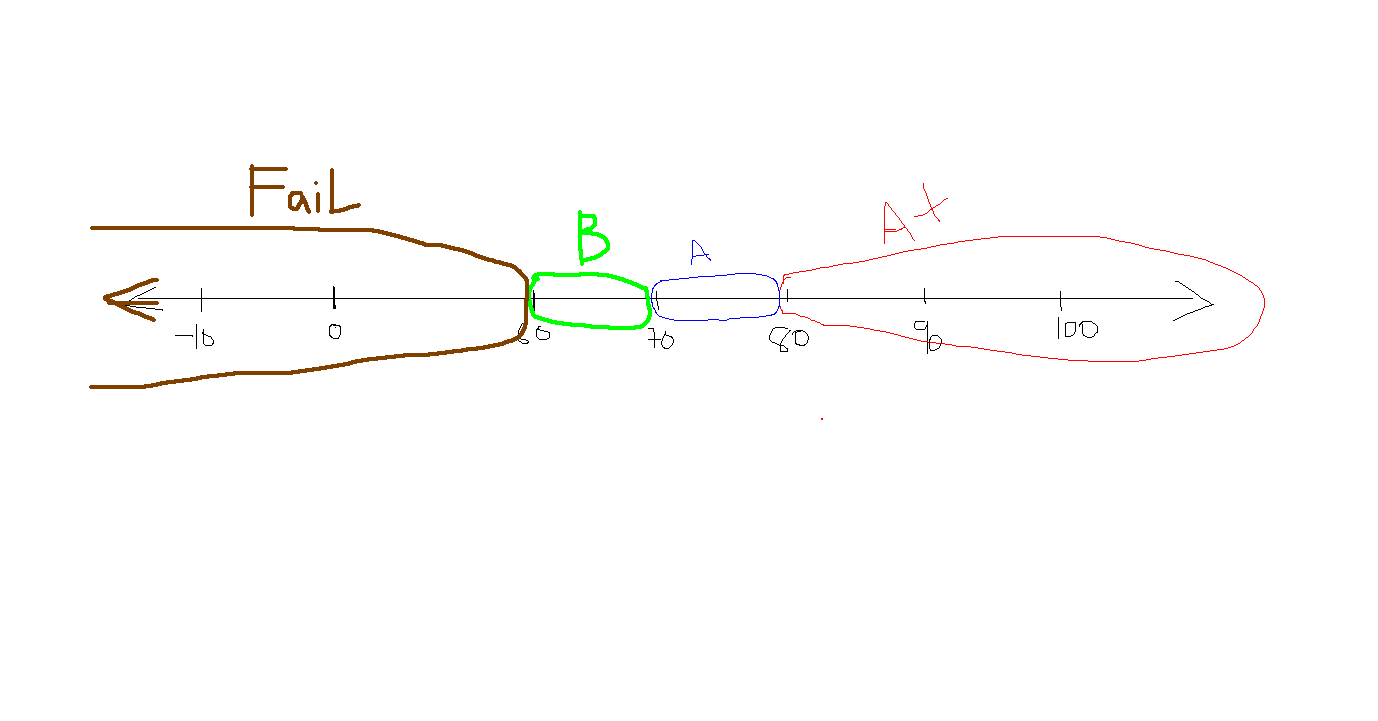 FaiL
B
A
A+
-10 0 60 70 80 90 100